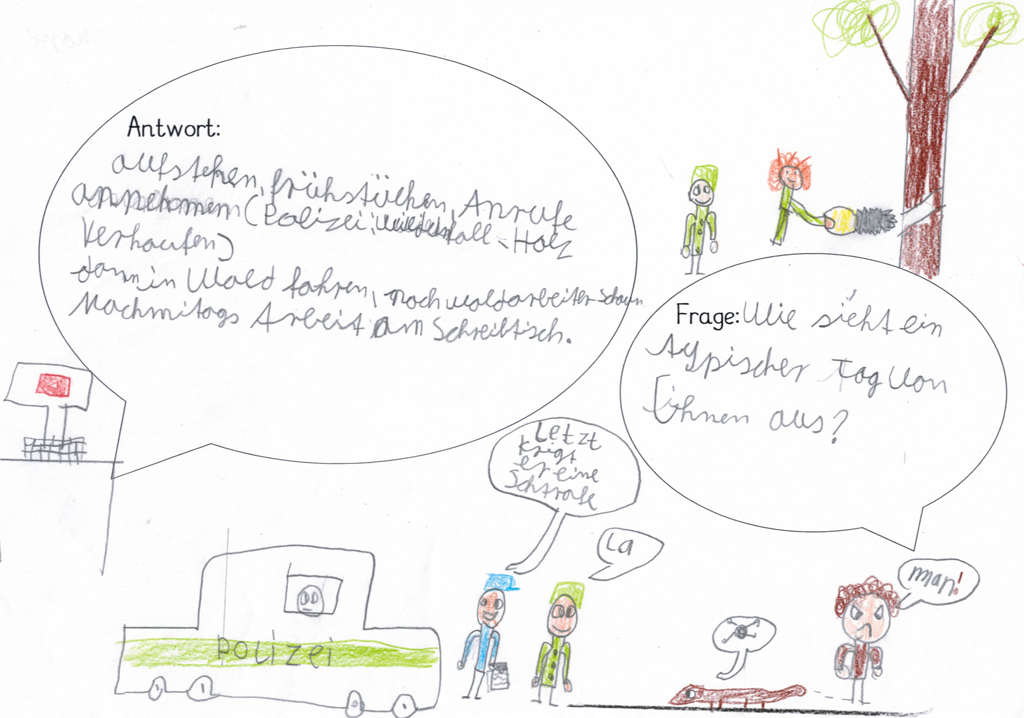 Antwort:
aufstehen, frühstücken, Anrufe
annehmen (Polizei, Wildunfall - Holz
Verkaufen)
dann in Wald fahren, nach waldarbeiter schaun
Nachmitags Arbeit am Schreibtisch.
Frage: Wie sieht ein
typischer Tag von
ihnen aus?
Letzt
krigt
er eine
Schtrafe
La
man!
Polizei